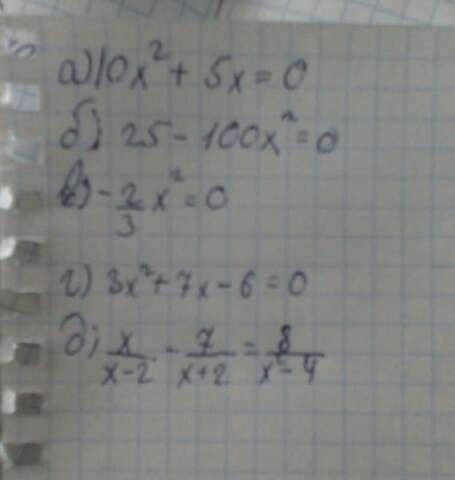 а) 10x² + 5x = 0
б) 25 - 100x² = 0
в) - 2/3 x² = 0
г) 3x² + 7x - 6 = 0
д) x/(x-2) - 7/(x+2) = 8/(x²-4)